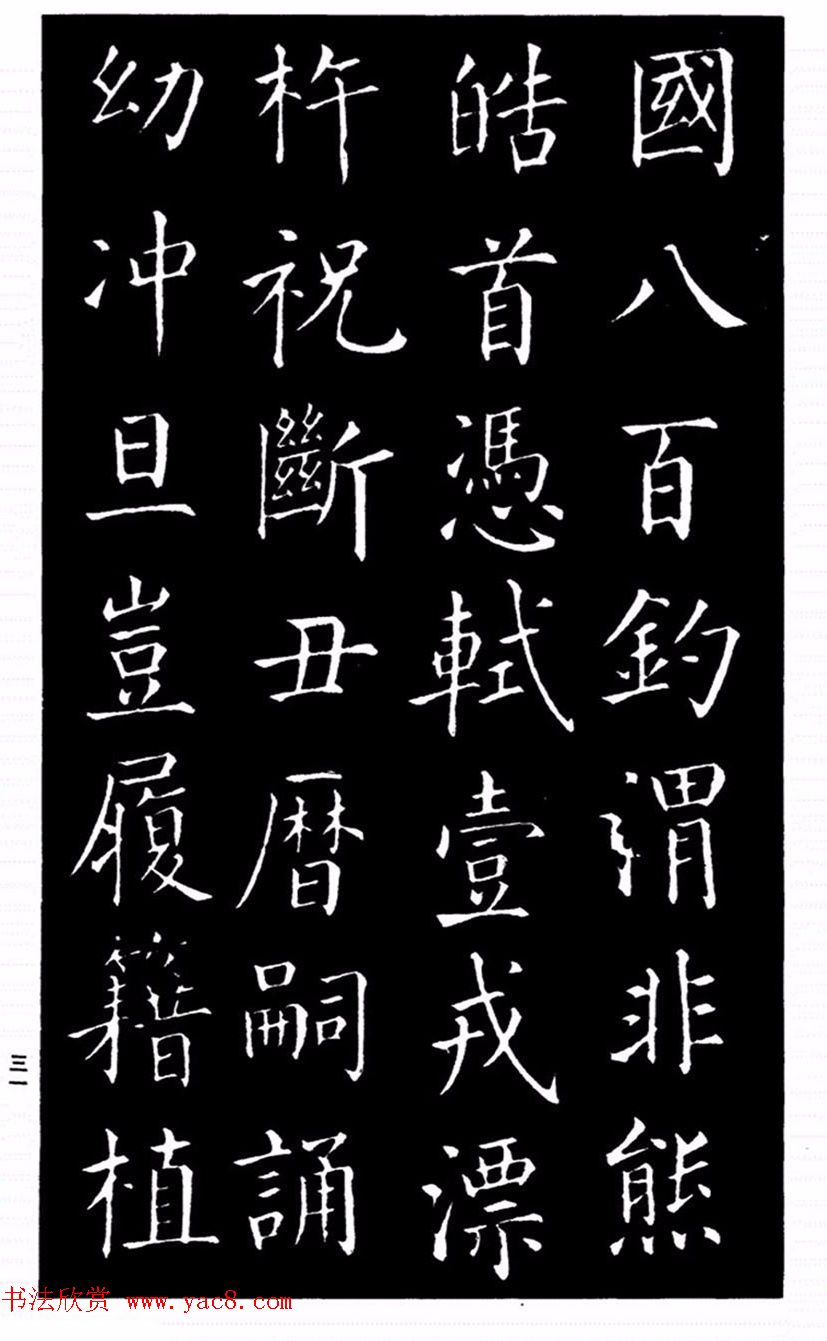 國八百釣謂非熊
皓首憑軾壹戎漂
杵祝斷丑曆嗣誦
幼冲旦豈履籍植
三一
书法欣赏 www.yac8.com